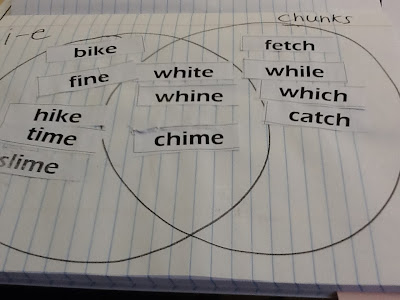 i-e
chunks
bike
fine
hike
time
slime
white
whine
chime
fetch
while
which
catch